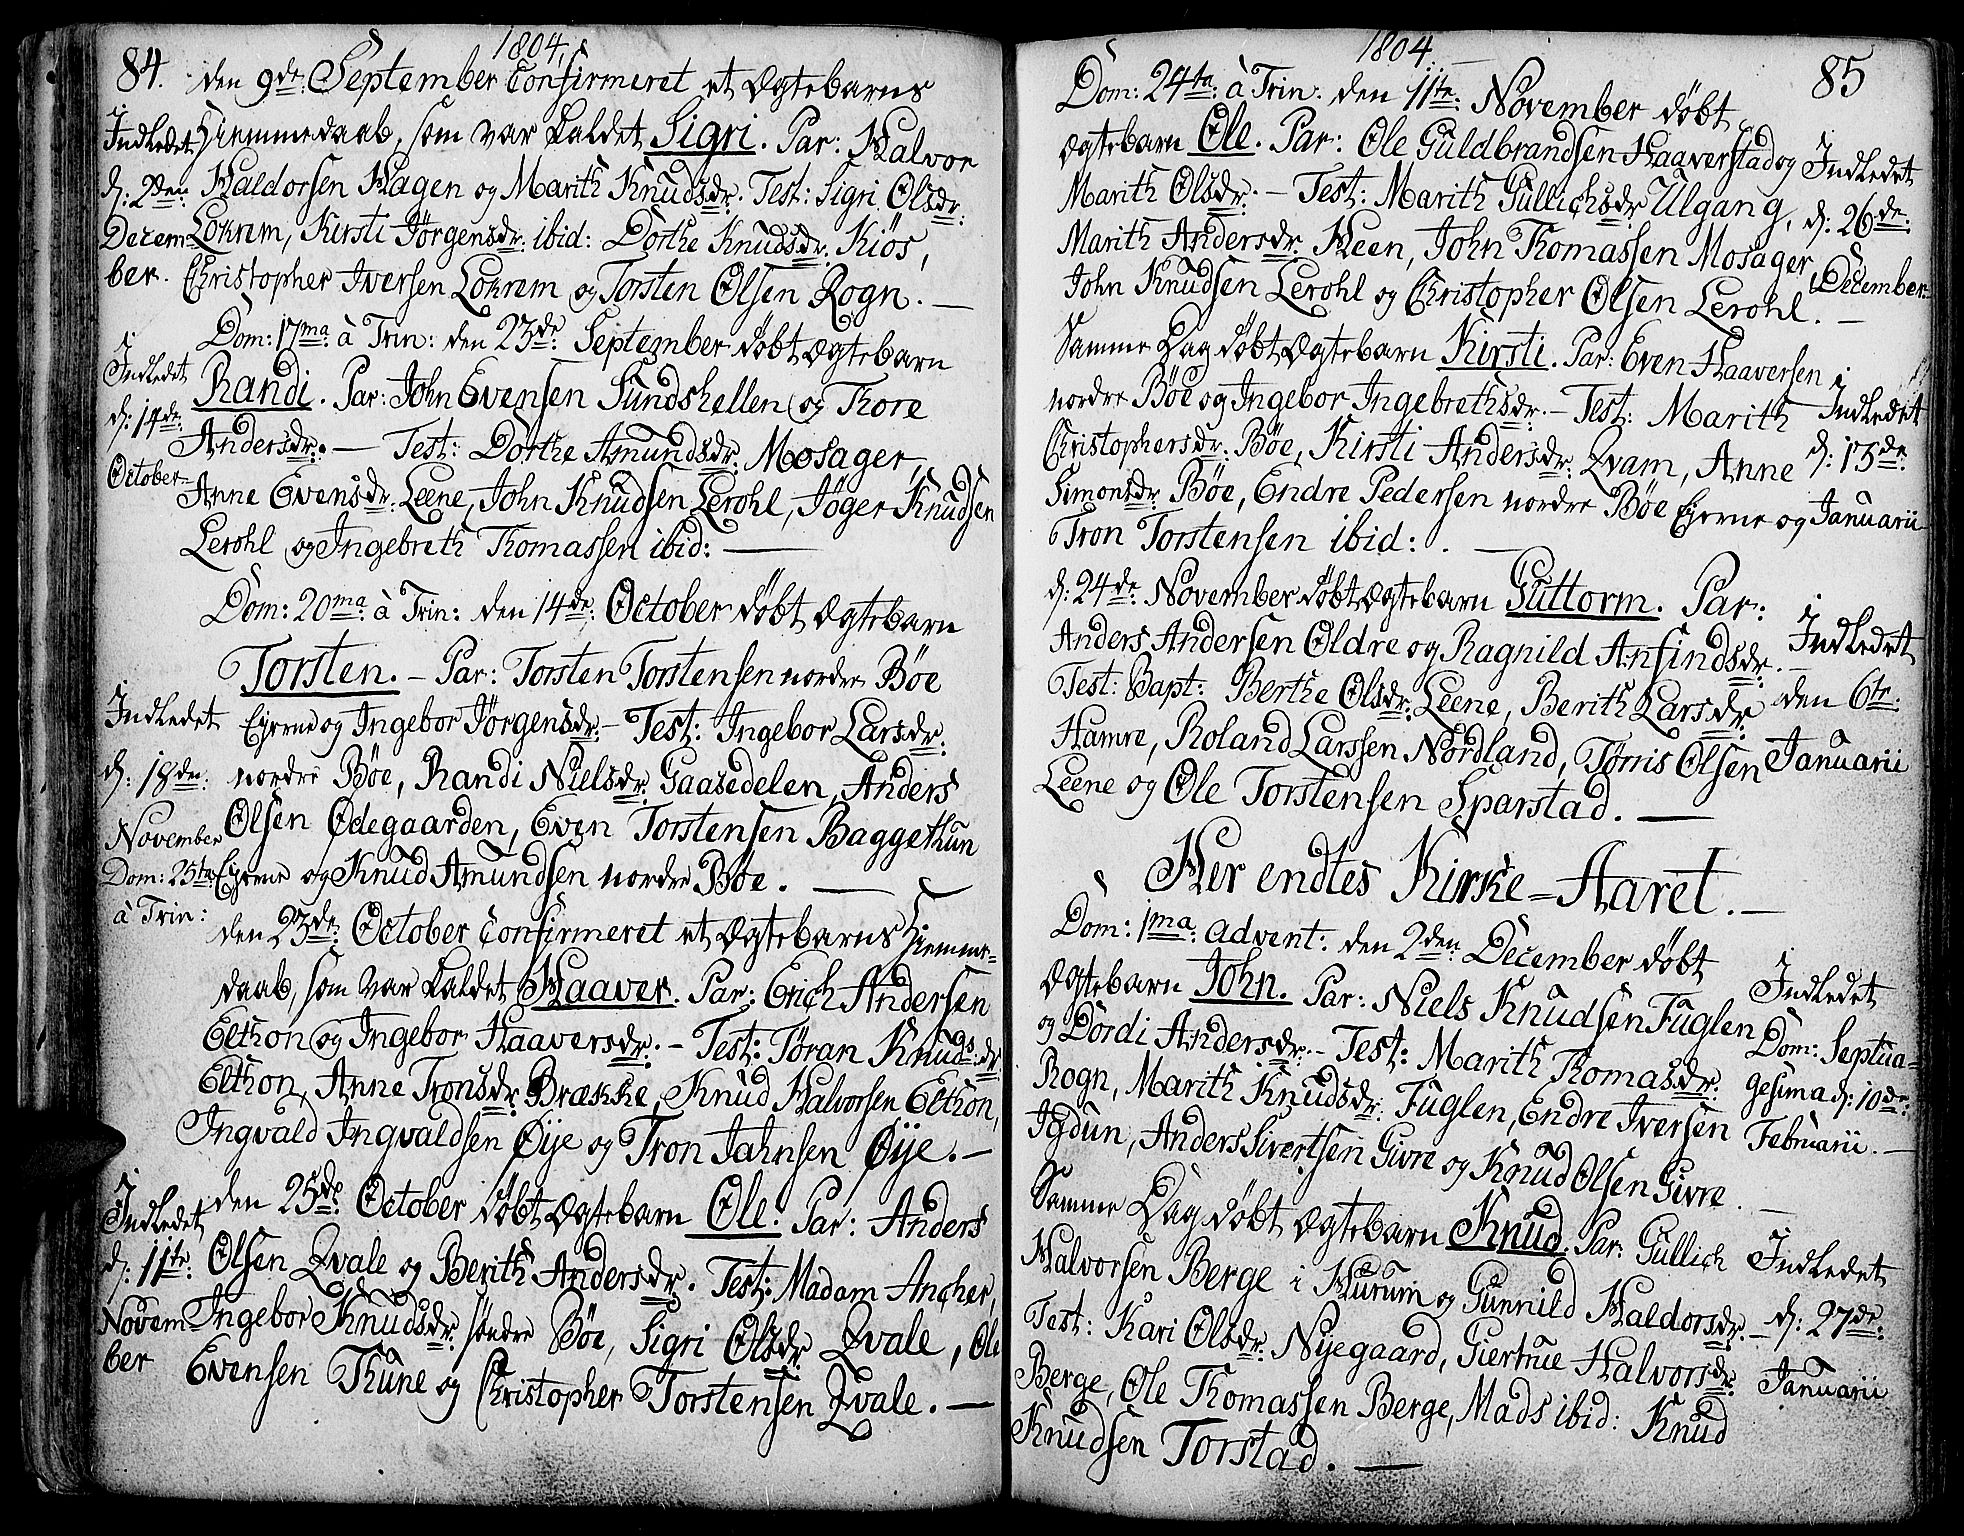 84.
1804.
den 9de: September Confirmeret et Ægtebarns
Hiemmedaab, som var kaldet Sigri. Par: Halvor
Haldorsen Hagen og Marith Knudsdr. Test: Sigri Olsdr:
Lokrem, Kirsti Jørgensdr: ibid: Dorthe Knudsdr: Kiös,
Christopher Iversen Lokrem og Torsten Olsen Rogn. —
Indledet
d: 2den:
Decem-
ber.
Dom: 17ma: à Trin: den 23de: September döbt Ægtebarn
Randi. Par: John Evensen Sundshellen og Thore
Andersdr:. — Test: Dorthe Amundsdr: Mosager,
Anne Evensdr: Leene, John Knudsen Lerohl, Jøger Knudsen
Lerohl og Ingebreth Thomassen ibid: —
Indledet
d: 14de:
October
Dom: 20ma: à Trin: den 14de: October döbt Ægtebarn
Torsten. — Par: Torsten Torstensen nordre Böe
Ejerne og Ingebor Jørgensdr: — Test: Ingebor Larsdr:
nordre Böe, Randi Nielsdr: Gaasedelen, Anders
Olsen Ødegaarden, Even Torstensen Baggethun
Ejerne og Knud Amundsen nordre Böe. —
Indledet
d: 18den:
November
Dom: 25ta:
à Trin:
den 23de: October Confirmeret et Ægtebarns Hiemme-
daab, som var kaldet Haaver. Par: Erich Andersen
Elthon og Ingebor Haaversdr:. — Test: Töran Knudsdr:
Elthon, Anne Tronsdr: Brække, Knud Halvorsen Elthon,
Ingvald Ingvaldsen Øije og Tron Jahnsen Øije. —
den 25de: October döbt Ægtebarn Ole: Par: Anders
Olsen Qvale og Berith Andersdr:. Test: Madam Ancher,
Ingebor Knudsdr: söndre Böe, Sigri Olsdr: Qvale, Ole
Evensen Thune og Christopher Torstensen Qvale. —
Indledet
d: 11te:
Novem-
ber
1804.
85
Dom: 24ta: à Trin: den 11te: November döbt
Ægtebarn Ole. Par: Ole Guldbrandsen Haaverstad og
Marith Olsdr:. — Test: Marith Gullichsdr: Ulgang,
Marith Andersdr: Heen, John Thomassen Mosager,
John Knudsen Lerohl og Christopher Olsen Lerohl. —
Indledet
d: 26de:
December
Samme Dag döbt Ægtebarn Kirsti. Par: Even Haaversen
nordre Böe og Ingebor Ingebrethsdr:. — Test: Marith
Christophersdr: Böe, Kirsti Andersdr: Qvam, Anne
Simonsdr: Böe, Endre Pedersen nordre Böe Ejerne og
Tron Torstensen ibid: . —
Indledet
d: 13de:
Januarii
d: 24de: November döbt Ægtebarn Guttorm. Par:
Anders Andersen Oldre og Ragnild Anfindsdr:. —
Test: Bapt: Berthe Olsdr: Leene, Berith Larsdr:
Hamre, Roland Larssen Nordland, Törris Olsen
Leene og Ole Torstensen Sparstad. —
Indledet
den 6te:
Januarii
Her endtes Kirke-Aaret. —
Dom: 1ma: Advent: den 2den: December döbt
Ægtebarn John. Par: Niels Knudsen Fuglen
og Dordi Andersdr:. — Test: Marith Thomasdr:
Rogn, Marith Knudsdr: Fuglen, Endre Iversen
Igdun, Anders Sivertsen Givre og Knud Olsen Givre. —
Indledet
Dom: Septua-
gesima d: 10de:
Februarii. —
Samme Dag döbt Ægtebarn Knud. Par: Gullich
Halvorsen Berge i Hurum og Gunnild Haldorsdr:. —
Test: Kari Olsdr: Nyegaard, Giertrue Halvorsdr:
Berge, Ole Thomassen Berge, Mads ibid: Knud
Knudsen Torstad. —
Indledet
d: 27de:
Januarii